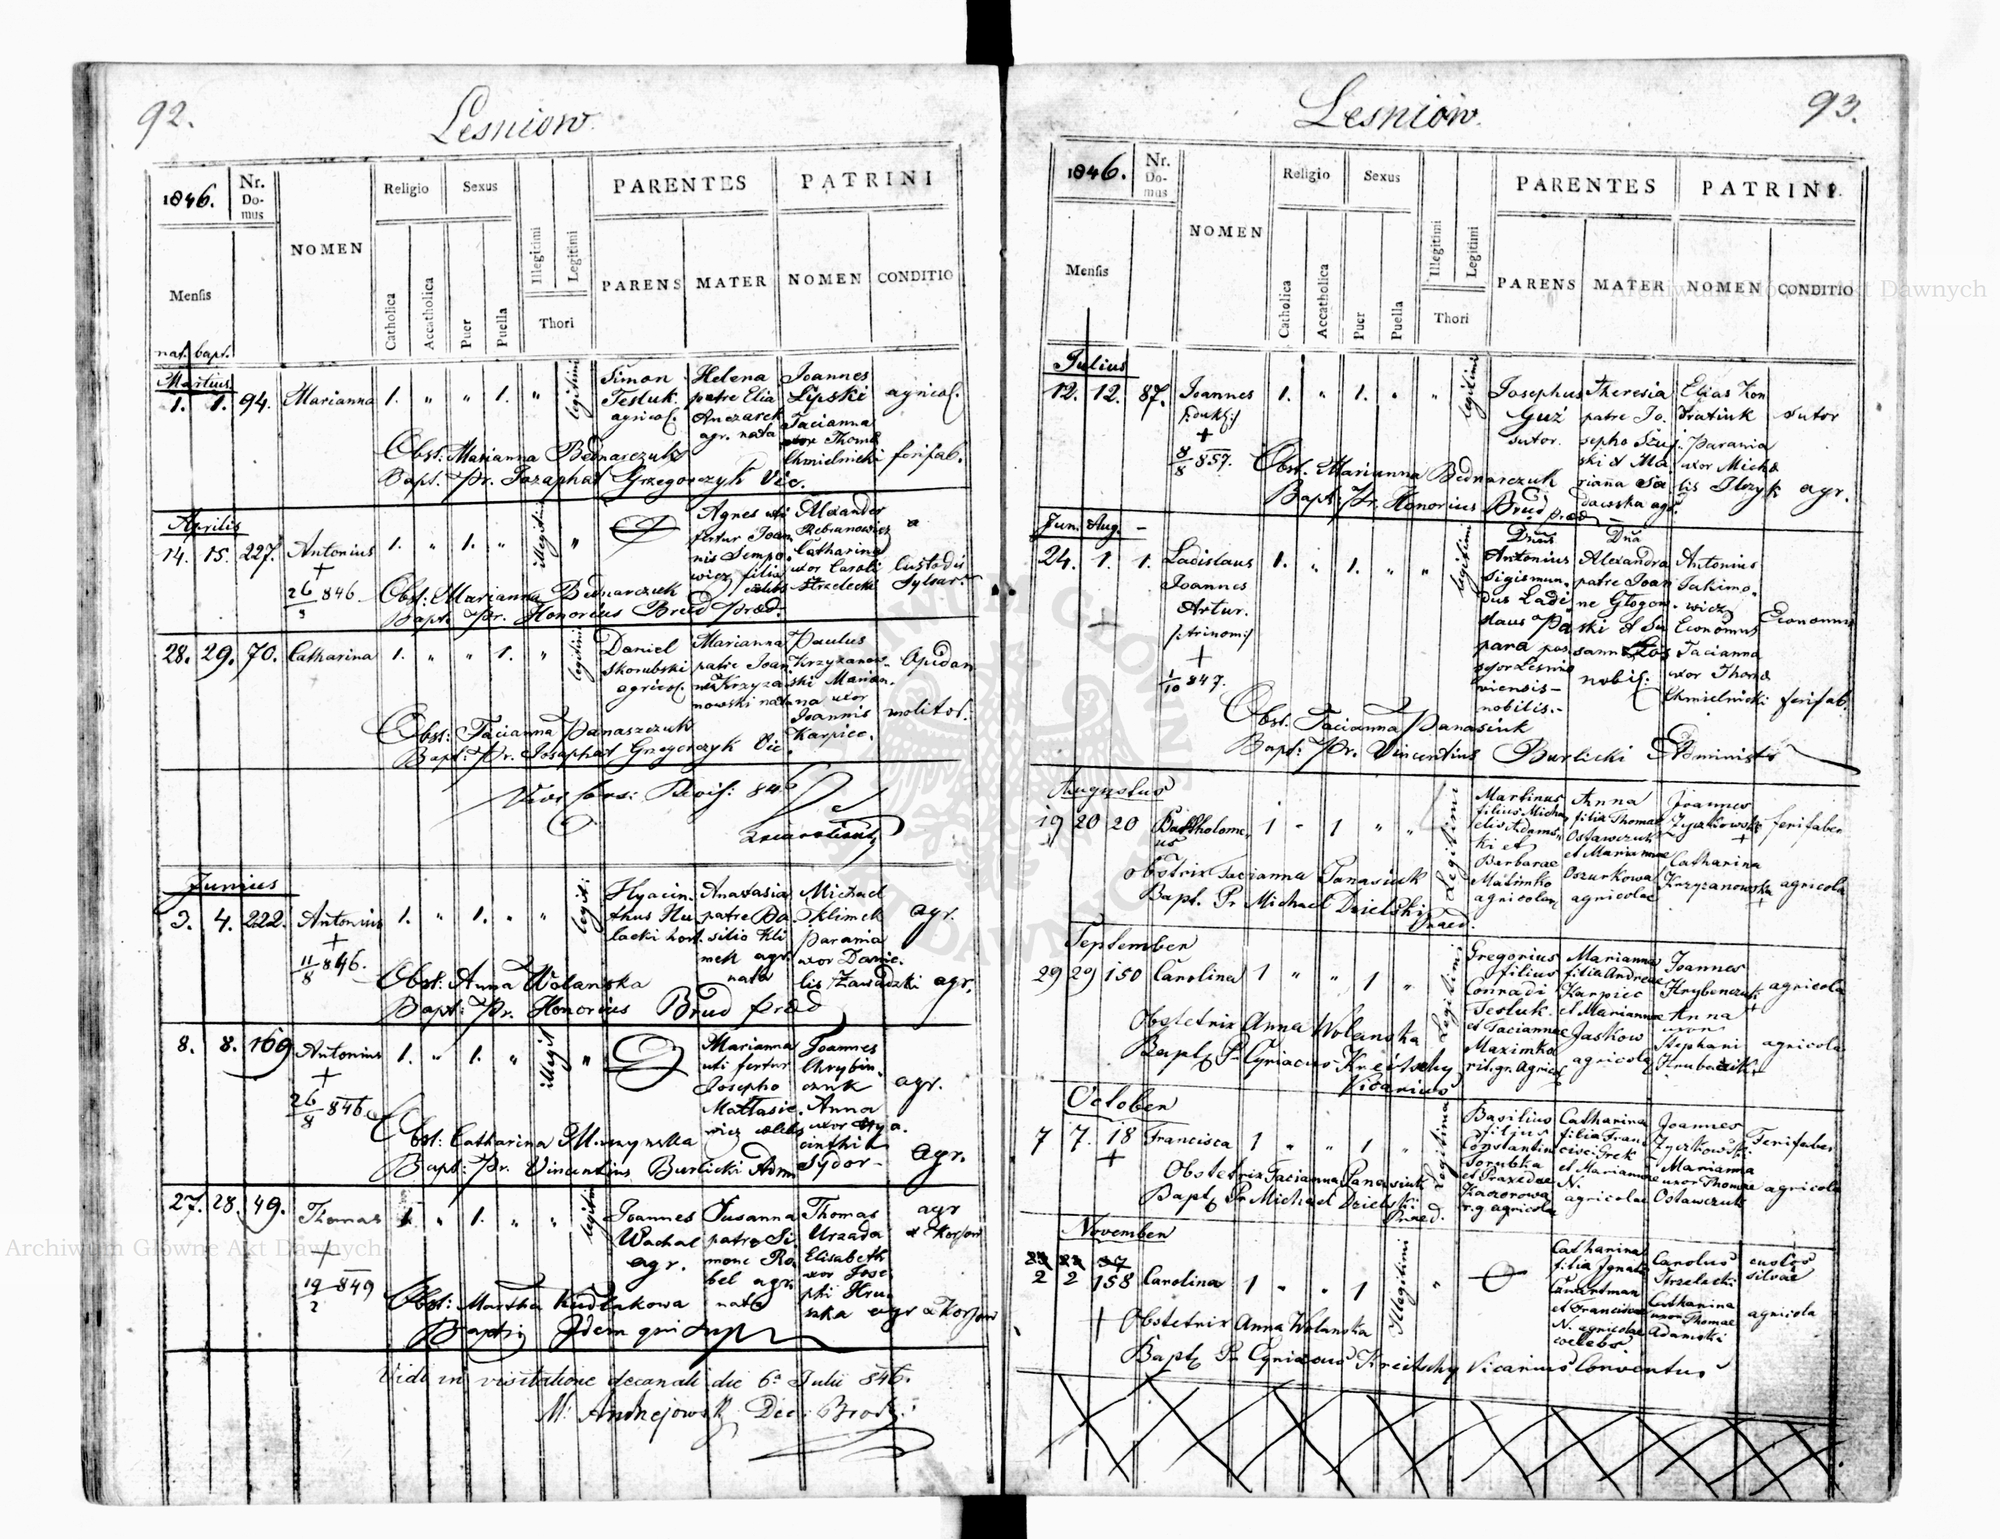 92.
Lesniow.
1846.
Nr. Do-mus
NOMEN
Religio
Sexus
Illegitimi
Legitimi
Thori
PARENTES
PATRINI
Mensis
Catholica
Accatholica
Puer
Puella
PARENS
MATER
NOMEN
CONDITIO
nat. bapt.
Martius
1. 1. 94. Marianna 1. " " 1. " legitimi
Simon
Tesluk
agricol.
Helena
patre Elia
agr. nata
Joannes
Lipski
Tacianna
uxor Thomæ
Chmielnicki
agricol.
ferifab.
Obst: Marianna Bednarczuk
Bapt. Pr. Jozaphat Grzegorczyk Vic.
Aprilis
14. 15. 227. Antonius 1. " 1. " illegitimi "
+
26/3 846.
Agnes uti
fertur Joan
nis Sempo
wicz filia
celebs
Alexander
Rebranowicz
Catharina
uxor Caroli
Strzelecki
Custodis
Sylvar.
Obst: Marianna Bednarczuk
Bapt: Pr. Honorius Brud Præd:
28. 29. 70. Catharina 1. " " 1. " legitimi
Daniel
Skorubski
agricol.
Marianna
patre Joan
nis Krzyza
nowski nata
Paulus
Krzyzanow-
ski Marian.
na uxor
Joannis
Karpiec.
molitor.
Obst: Tacianna Panaszczuk
Bapt: Pr. Josaphat Grzegorczyk Vic.
846
Junius
3. 4. 222. Antonius 1. " 1. " " legit:
+
11/8 846.
Hyacin-
thus Hu
lacki hort.
Anastasia
patre Ba-
silio Kli
mek agr.
nata
Michael
Klimek
Parania
uxor Danie-
lis Zawadzki
agr.
agr.
Obst: Anna Wolanska
Bapt: Pr. Honorius Brud præd
8. 8. 169 Antonius 1. " 1. " illegit "
+
26/8 846.
Marianna
uti fertur
Josepho
Mattasie-
wicz celebs
Joannes
Chrybin-
czuk
Anna
uxor Hya-
cinthi
Sydor-
agr.
agr.
Obst: Catharina Muczynska
Bapt: Pr. Vincentius Burlicki Adm
27. 28. 49. Thomas 1. " 1. " " legitimi
+
19/2 849
Joannes
Wachal
agr.
Susanna
patre Si
mone Ro
bel agr.
nata
Thomas
Urzada
Elisabeth
uxor Jose
phi Hru
szka
agr
x Korsow
agr x Korsow
Obst: Martha Kudlakowa
Bapti: Idem qui supr
Vidi in visitatione decanali die 6a Julii 846.
M: Andrzejowski Dec: Brod.
93.
Lesniów.
1846.
Nr. Do-mus
NOMEN
Religio
Sexus
Illegitimi
Legitimi
Thori
PARENTES
PATRINI.
Mensis
Catholica
Accatholica
Puer
Puella
PARENS
MATER
NOMEN
CONDITIO
Julius
12. 12. 87. Joannes 1. " 1. " " legitimi
+
8/8 857.
Josephus
Guź
sutor.
Theresia
patre Jo-
sepho Szuj
ski & Ma
rianna Sa
dawska agr.
Elias Kon
dratiuk
Parania
uxor Micha
lis Ilczyk
sutor
agr.
Obst. Marianna Bednarczuk
Bapt: Pr. Honorius Brud præd
Jun. Aug.
24. 1. 1. Ladislaus 1. " 1. " " legitimi
Joannes
Artur.
/:trinom:/
+
1/10 847.
Dnus
Antonius
Sigismun-
dus Ladi
slaus Pa
para pos
sesor Lesnio
viensis-
nobilis.-
Dna
Alexandra
patre Joan
ne Glogow
ski et Su
sanna Los
nobil:
Antonius
Jakimo-
wicz
Economus
Tacianna
uxor Thomæ
Chmielnicki
Economus
ferifab.
Obst: Tacianna Panasiuk
Bapt: Pr. Vincentius Burlicki Administr
Augustus
19 20 20 Bartholome- 1 - 1 " " Legitimi
us
Martinus
filius Micha
elis Adams-
ki et
Barbarae
Matimko
agricolar
Anna
filia Thomae
Ostawczuk
et Mariannae
Oszurkowa
agricolae
Joannes
Zyczkowski
+
Catharina
Krzyzanowska
+
ferifaber
agricola
Obstetrix Tacianna Panasiuk
Bapt. Pr Michael Dzielski
Praed.
September
29 29 150 Carolina 1 " " 1 " Legitimi
Gregorius
filius
Conradi
Tesluk
et Taciannae
Maximka
rit.gr. Agricol
Marianna
filia Andreae
Karpiec
et Mariannae
Jaskow
agricola
Joannes
Hrybenczuk
+
Anna
uxor
Stephani
Hrubczuk
agricola
agricola
Obstetrix Anna Wolanska
Bapt Pr Cyriacus Kreitschy
Vicarius
October
7 7. 18 Francisca 1 " " 1 " Legitimi
+
Basilius
filius
Constantini
Torubka
et Praxedae
Kaczorowa
r.g. agricola
Catharina
filia Fran
cisci Grek
et Mariannae
N.
agricolae
Joannes
Zyczkowski
Marianna
uxor Thomae
Ostawczuk
Ferifaber
agricola
Obstetrix Tacianna Panasiuk
Bapt Pr Michael Dzielski
Praed.
November
2 2 158 Carolina 1 " " 1 Illegitimi "
+
Catharina
filia Ignatii
Czwartman
et Franciscae
N. agricolae
celebs
Carolus
Strzelecki
Catharina
uxor Thomae
Adamski
custos
silvae
agricola
Obstetrix Anna Wolanska
Bapt Pr Cyriacus Kreitschy Vicarius Conventus
Archiwum Główne Akt Dawnych
Archiwum Główne Akt Dawnych
ARCHIWUM GŁÓWNE AKT DAWNYCH